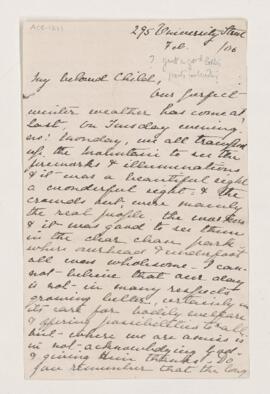 295 University Street
Feb. /06
My beloved Child,
Our perfect
winter weather has come at
last. On Tuesday evening
no! Monday, we all tramped
up the Mountain to see the
fireworks & illuminations
& it was a beautiful sight
a wonderful sight. & the
crowds
the real people, the masses
& it was good to see them
in the clear clean park
when overhead & underfoot
all was wholesome. I can-
not believe that our day
is not in many respects
growing better, certainly in
its care for bodily welfare
& opening possibilities to all,
but where we are amiss is
in not acknowledging God
& giving Him thanks. Do
you remember that the long